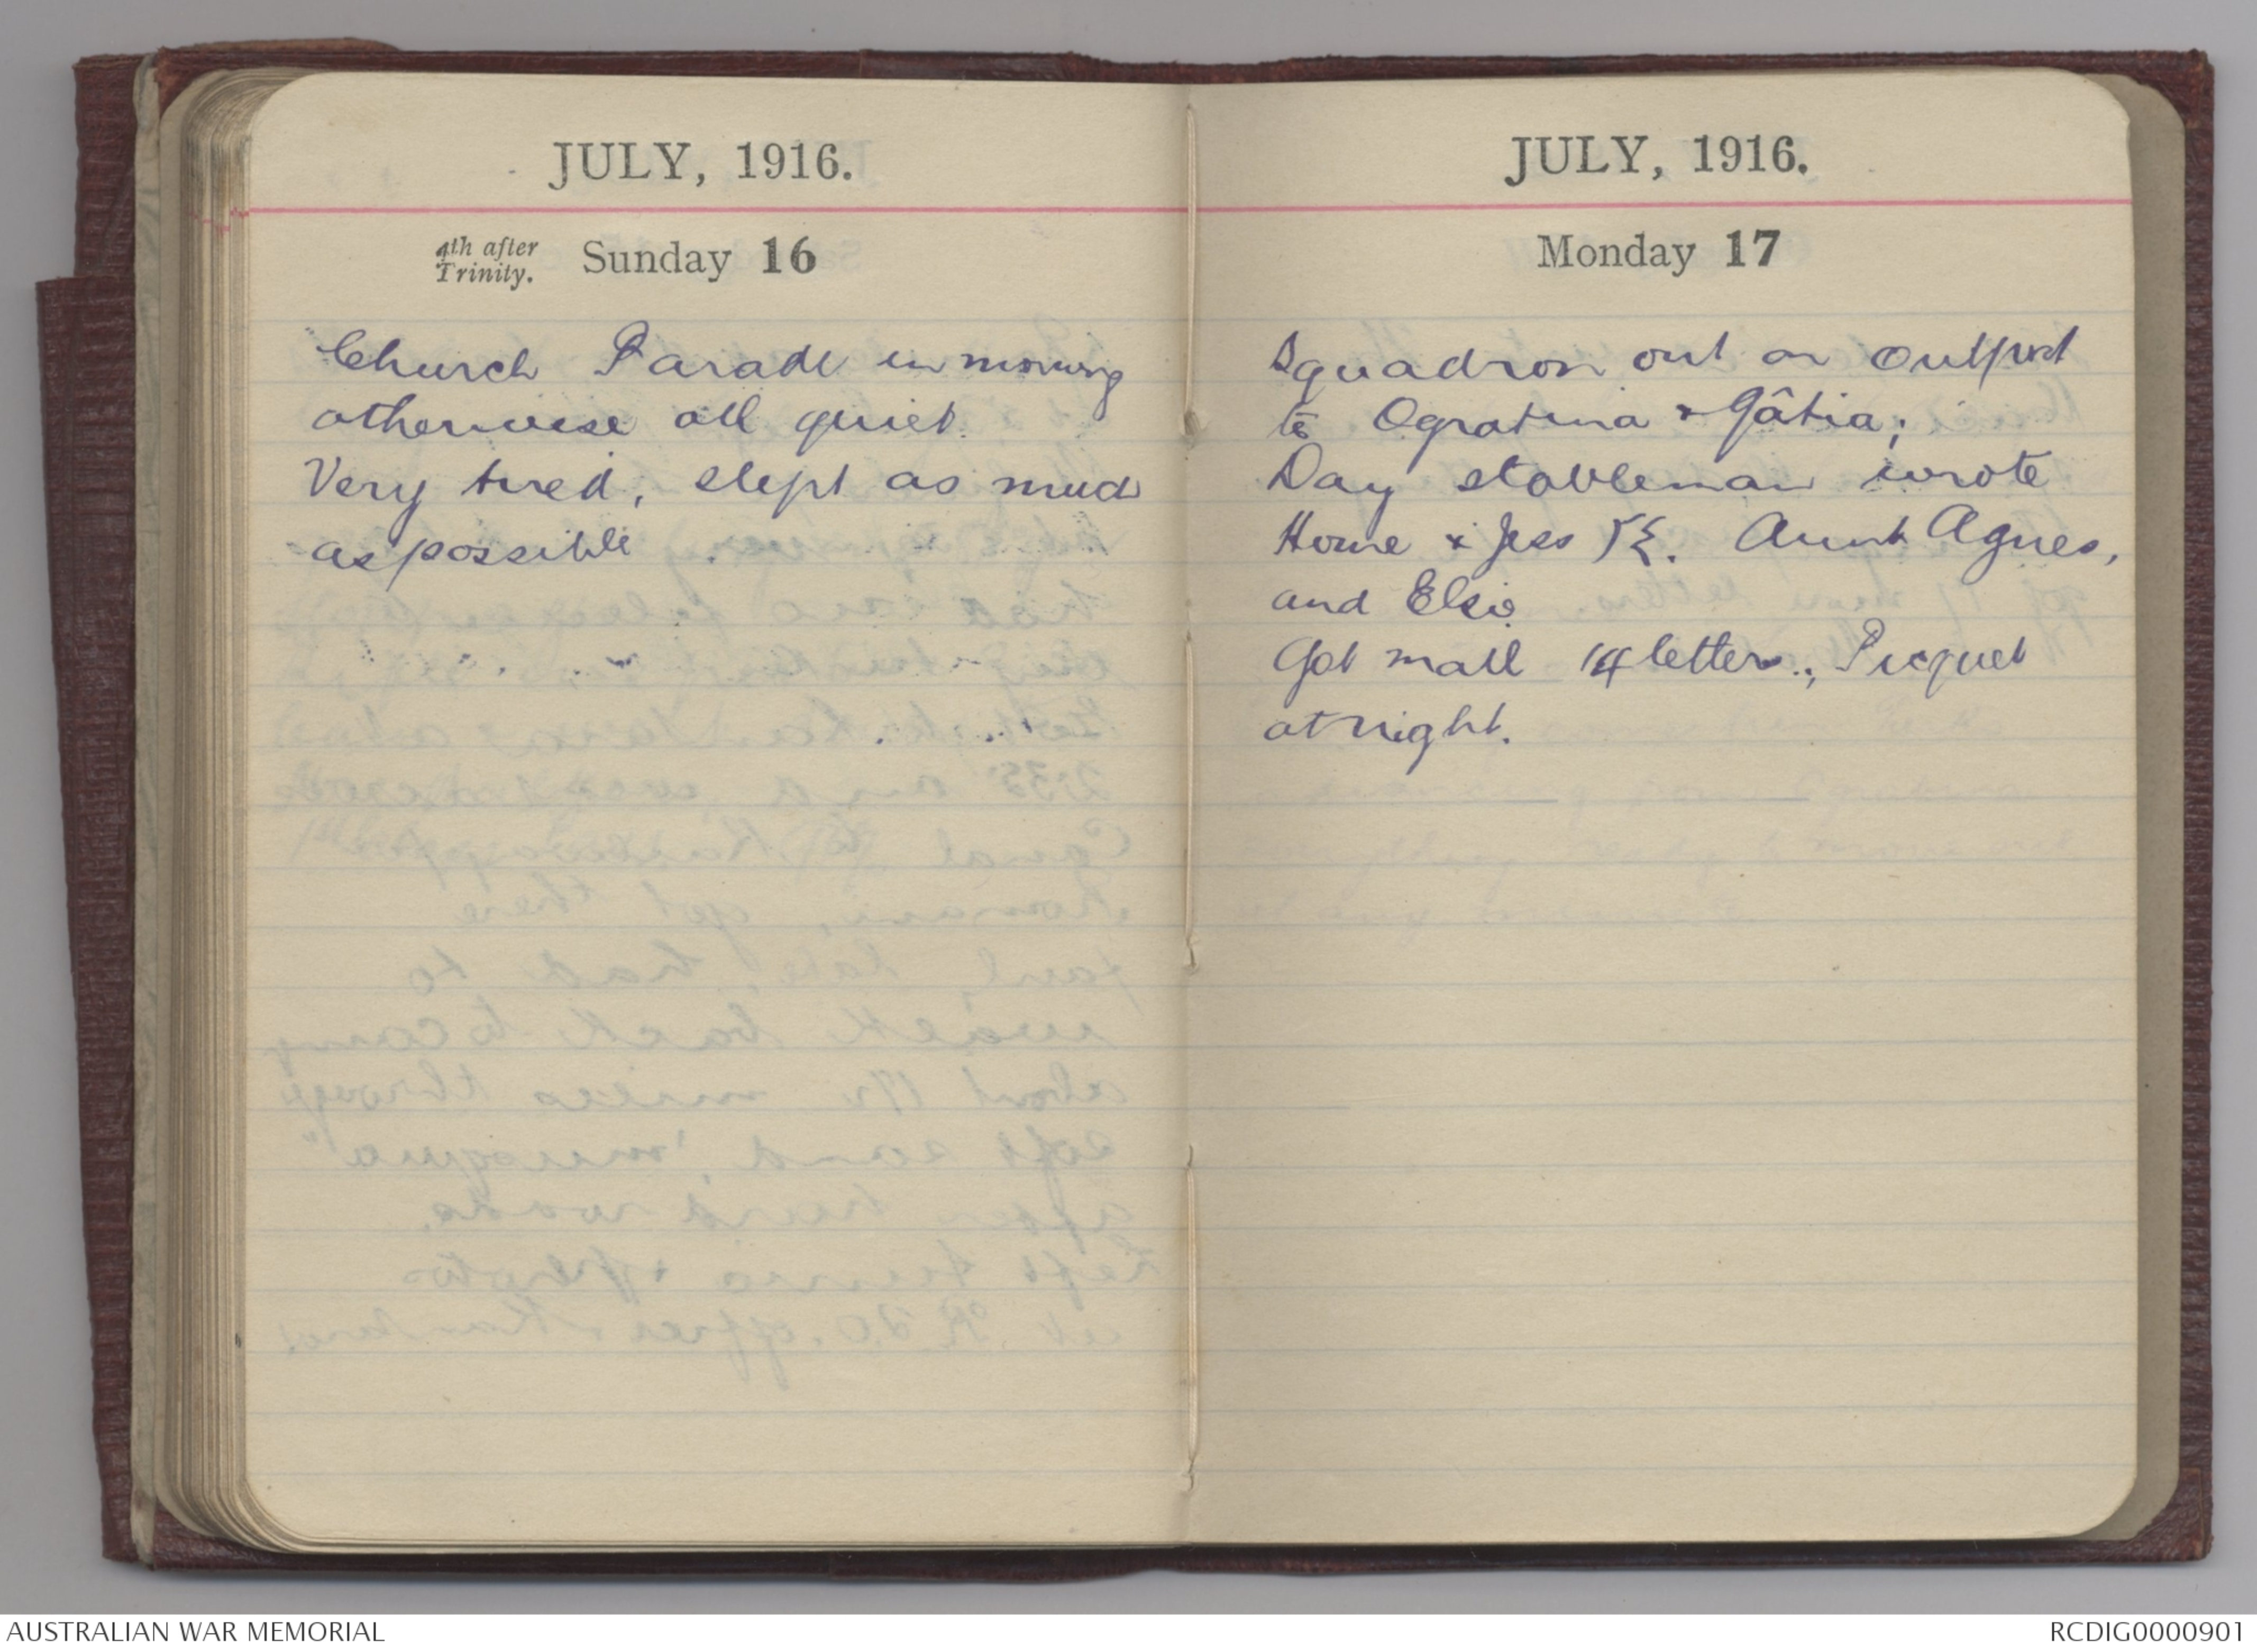 JULY, 1916.
4th after
Trinity.
Sunday 16
Church Parade in morning
otherwise all quiet.
Very tired, slept as much
as possible.
JULY, 1916.
Monday 17
Squadron out on outpost
to Ogratina & Gâtia;
Day stableman wrote
Home & Jess Aunt Agnes,
and Elsie
Got mail 14 letters., Picquet
at night.
AUSTRALIAN WAR MEMORIAL
RCDIG0000901